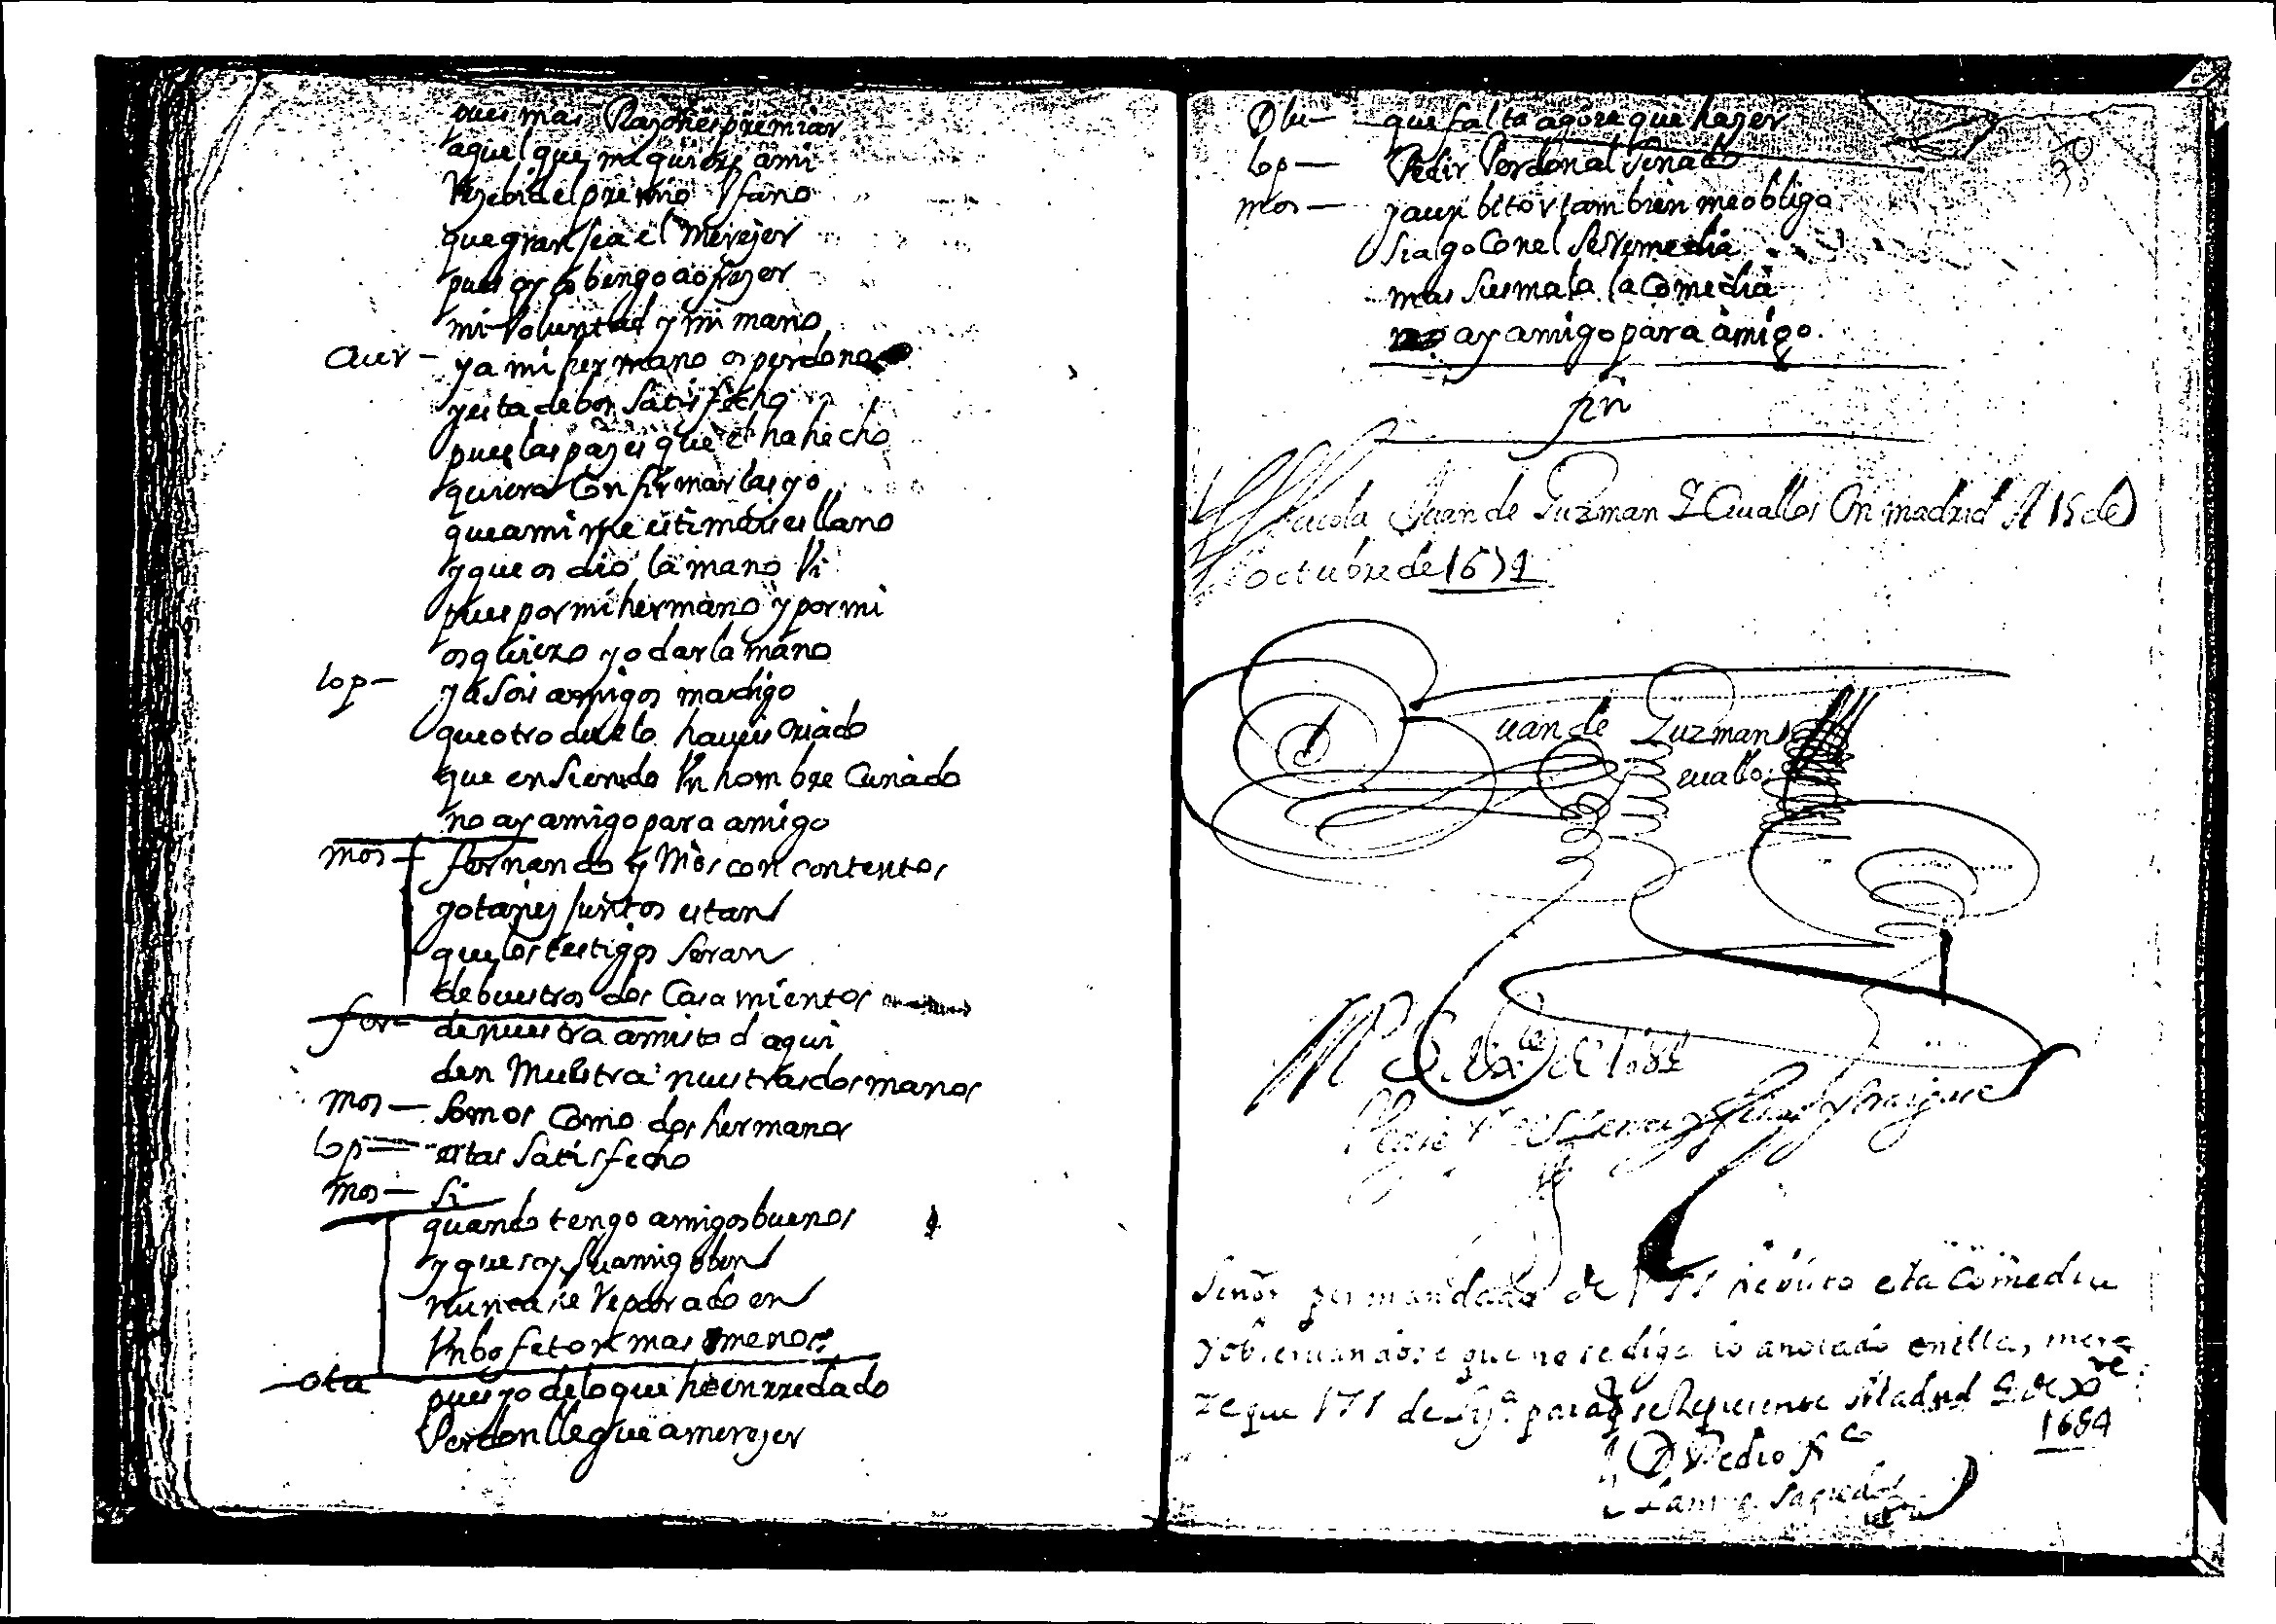 pues mas Razon es premiar
aquel que me quiere ami
Rezebid el premio Vfano
que gran sea el merezer
pues oy os bengo a ofrezer
mi Voluntad y mi mano
Aur - ya mi hermano os perdona
y esta de bos satisfecho
pues las pazes que el ha hecho
quiero Confirmar las yo
que a mi me estimais es llano
y que os dio la mano Vi
pues por mi hermano y por mi
os quiero yo dar la mano
lop - ya sois amigos mas digo
que otro duelo haueis Criado
que en siendo Vn hombre Cuñado
no ay amigo para amigo
mos - fernando y Moscon contentos
y otañez juntos estan
que los testigos seran
de buestros dos Casamientos
fer - de nuestra amistad aqui
den Muestra nuestras dos manos
mos - Somos Como dos hermanos
lop - estas satisfecho
mos - Si
quando tengo amigos buenos
y que soy su amigo ben
nunca he Reparado en
Vn bofeton mas o menos
ota pues yo de lo que he enrredado
Perdon llegue a merezer
que falta agora que hazer
lop - Pedir Perdon al Senado
mos - y a un bitor tambien me obligo
si algo Con el se Remedia
mas si es mala la Comedia
no ay amigo para amigo.
fin
Juan de Guzman Z Cuallos En madrid A 15 de
octubre de
uan de Guzman
Señor por mandado de VSS he visto esta Comedia
y obseruandose que no se diga lo anotado en ella, mere
ze que VSS de lizª. para q se Represente Madrid
1684
D Pedro frco
Lanine Sagredo